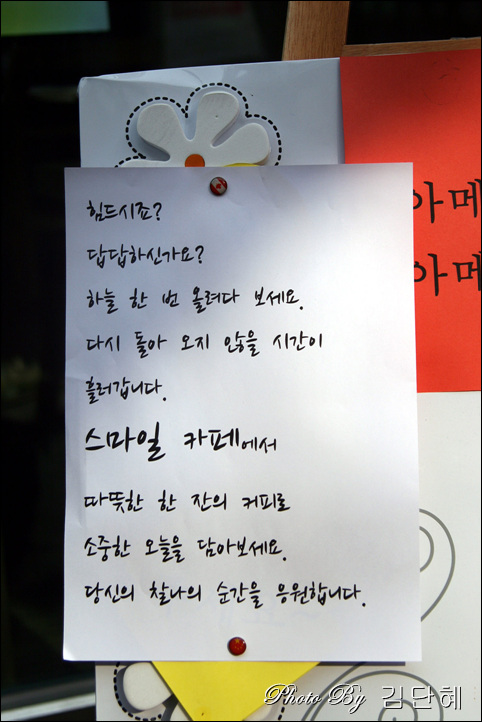 힘드시죠?
답답하신가요?
하늘 한 번 올려다 보세요.
다시 돌아 오지 않을 시간이
흘러갑니다.
스마일 카페에서
따뜻한 한 잔의 커피로
소중한 오늘을 담아보세요.
당신의 찰나의 순간을 응원합니다.
아메
아메
Photo By 김단혜